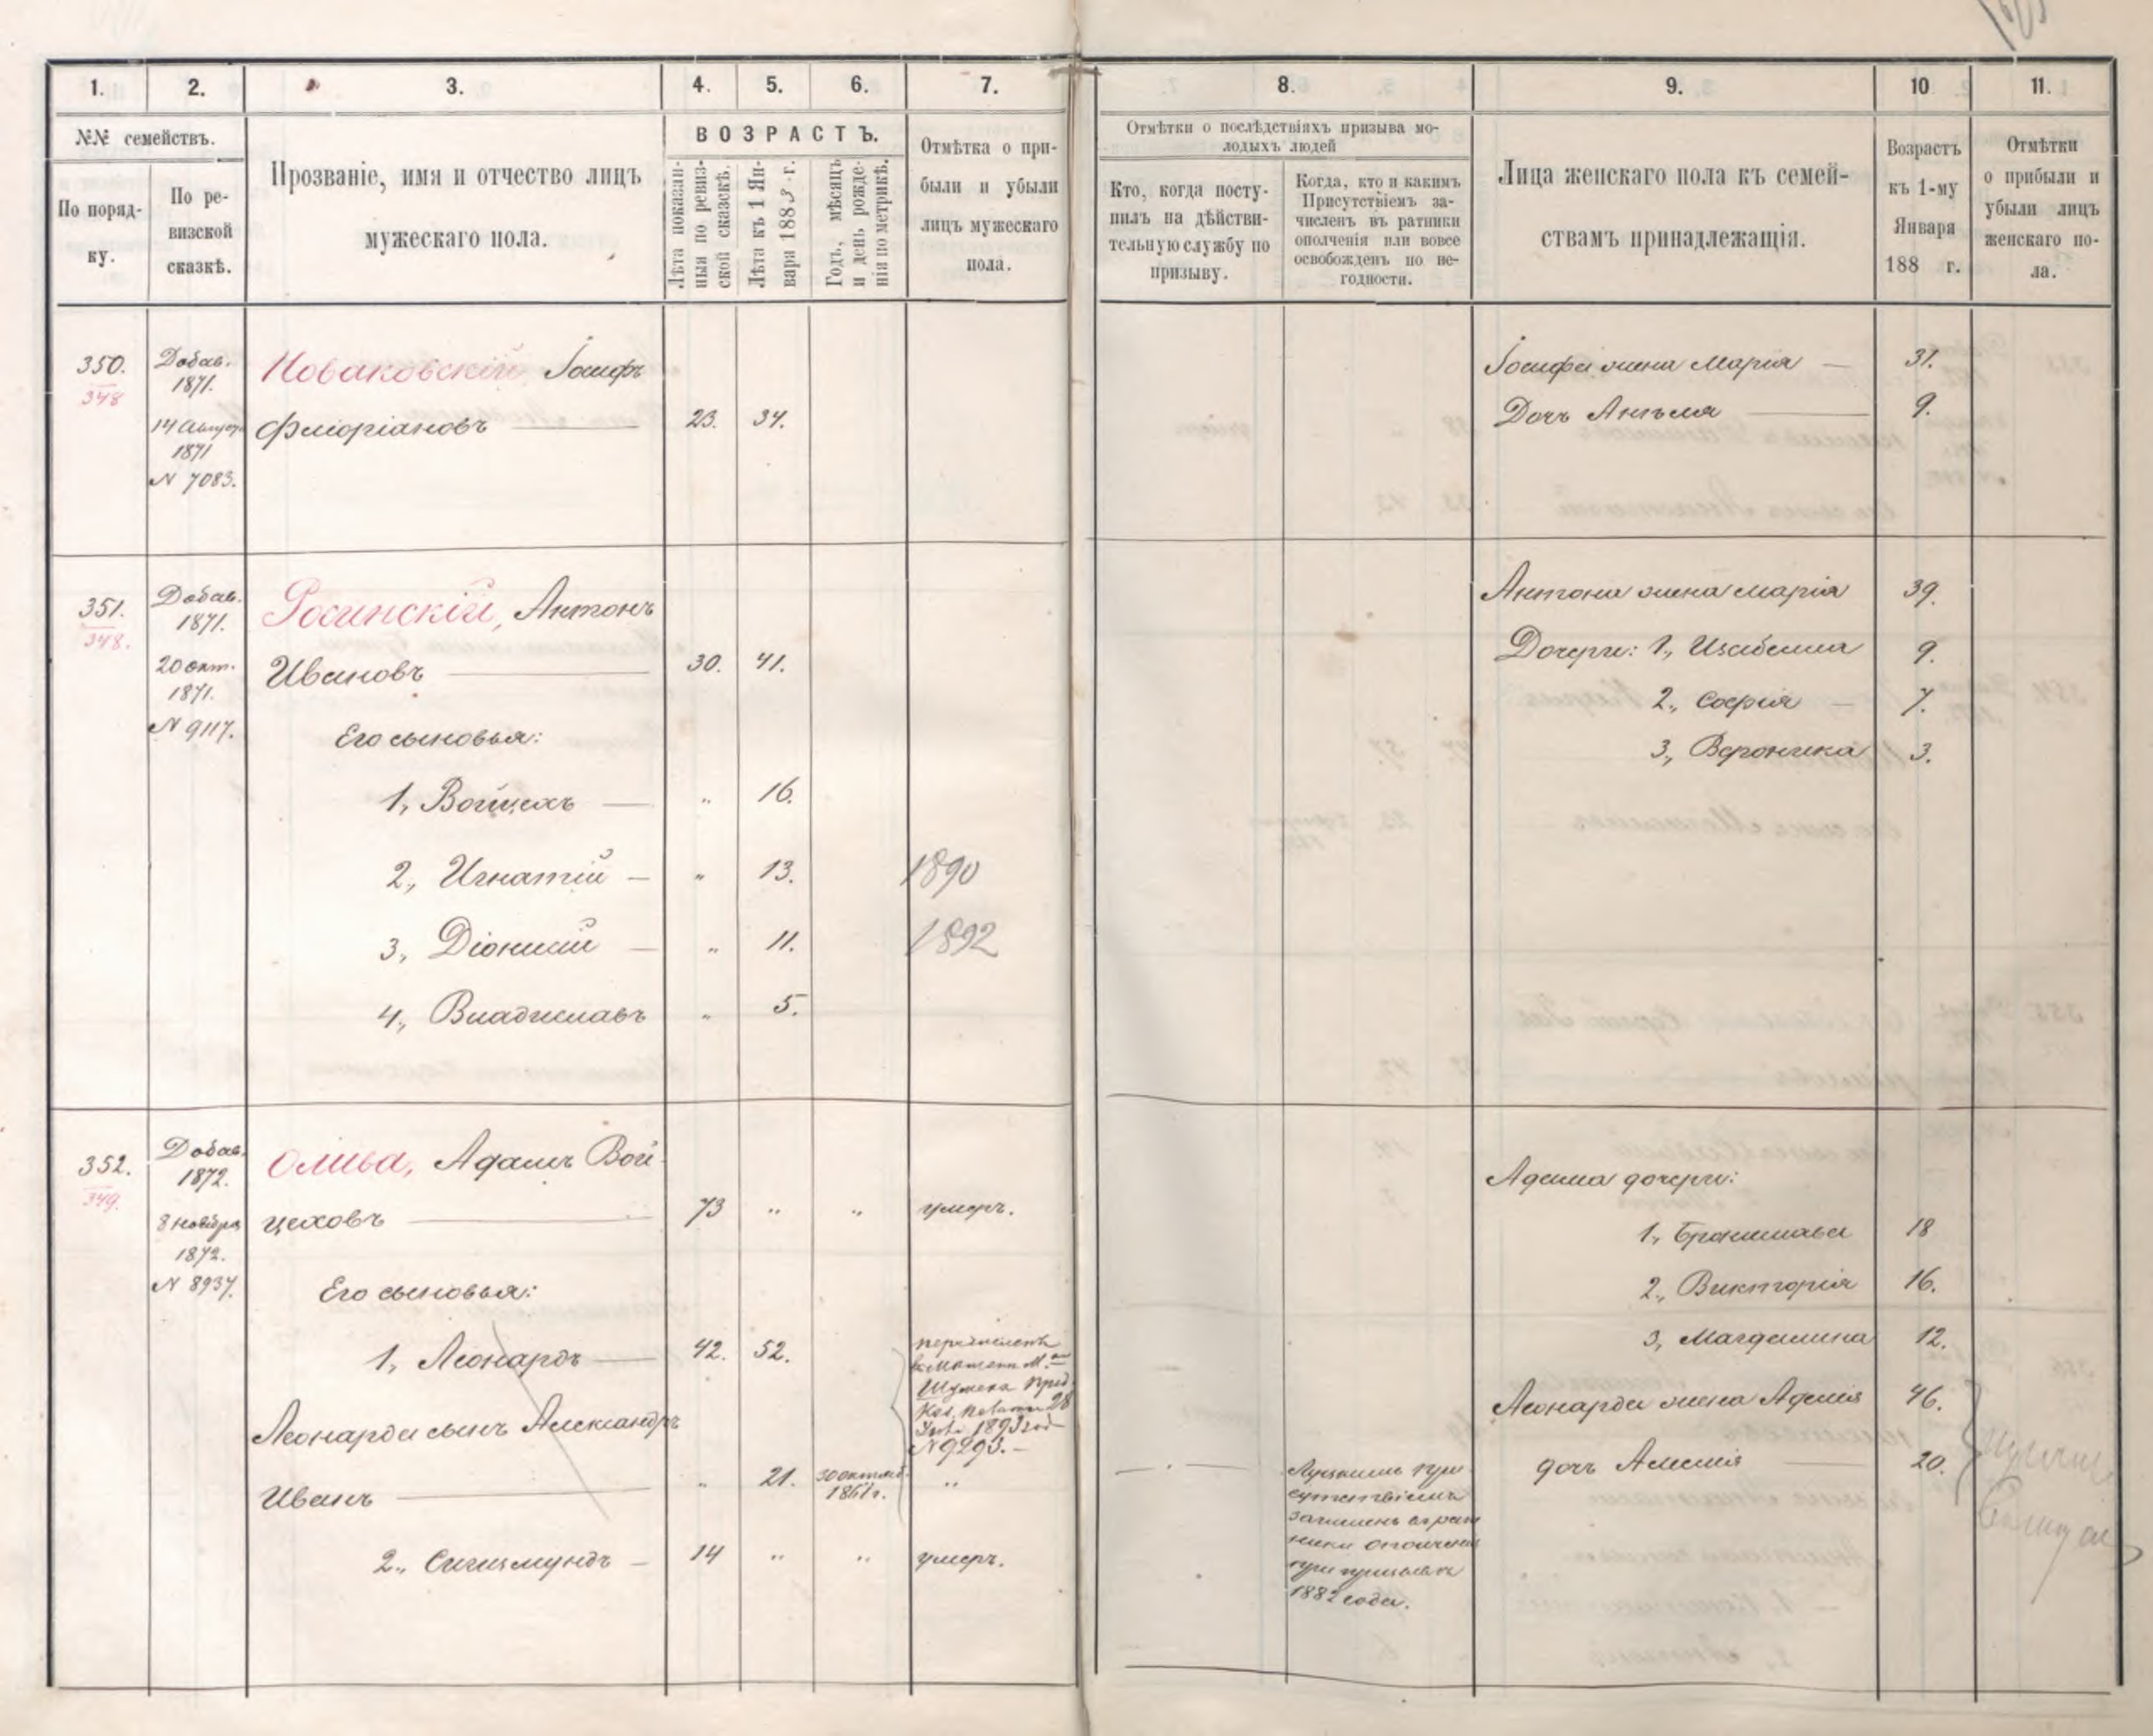 1.
2.
3.
4.
5.
6.
7.
№№ семействъ.
По поряд-
ку.
По ре-
визской
сказкѣ.
Прозваніе, имя и отчество лицъ
мужескаго пола.
ВОЗРАСТЪ.
Лѣта показан-
ныя по ревиз-
ской сказкѣ.
Лѣта къ 1 Ян-
варя 1883 г.
Годъ, мѣсяцъ
и день рожде-
нія по метрикѣ.
Отмѣтка о при-
были и убыли
лицъ мужескаго
пола.
350.
348
Добав.
1871.
14 Августа
1871
N 7083.
Новаковскій Іосифъ
Флоріановъ
23.
34.
351.
348.
Добав.
1871.
20 окт.
1871.
N 9117.
Росинскій, Антонъ
Ивановъ
30.
41.
Его сыновья:
1, Войцехъ
"
16.
2, Игнатій
"
13.
1890
3, Діонисій
"
11.
1892
4, Владиславъ
"
5.
352.
349.
Добав.
1872.
8 ноября
1872.
N 8937.
Олива, Адамъ Вой-
цеховъ
73
"
"
умеръ.
Его сыновья:
1, Леонардъ
42.
52.
перечисленъ
28
1893 год
N 9293.
Леонарда сынъ Александръ
Иванъ
"
21.
30 октяб.
1861 г.
"
2, Сигизмундъ
14
"
"
умеръ.
8.
9.
10
11.
Отмѣтки о послѣдствіяхъ призыва мо-
лодыхъ людей
Кто, когда посту-
пилъ на дѣйстви-
тельную службу по
призыву.
Когда, кто и какимъ
Присутствіемъ за-
численъ въ ратники
ополченія или вовсе
освобожденъ по не-
годности.
Лица женскаго пола къ семей-
ствамъ принадлежащія.
Возрастъ
къ 1-му
Января
188 г.
Отмѣтки
о прибыли и
убыли лицъ
женскаго по-
ла.
Іосифа жена Марія
31.
Дочь Анѣля
9.
Антона жена Марія
39.
Дочери: 1, Изабелла
9.
2, Софія
7.
3, Вероника
3.
Адама дочери:
1, Бронислава
18
2, Викторія
16.
3, Магдалина
12.
Леонарда жена Аделія
46.
дочь Амелія
20.
Луцкимъ при-
сутствіемъ
зачисленъ въ рат-
ники ополченія
при призывѣ
1882 года.